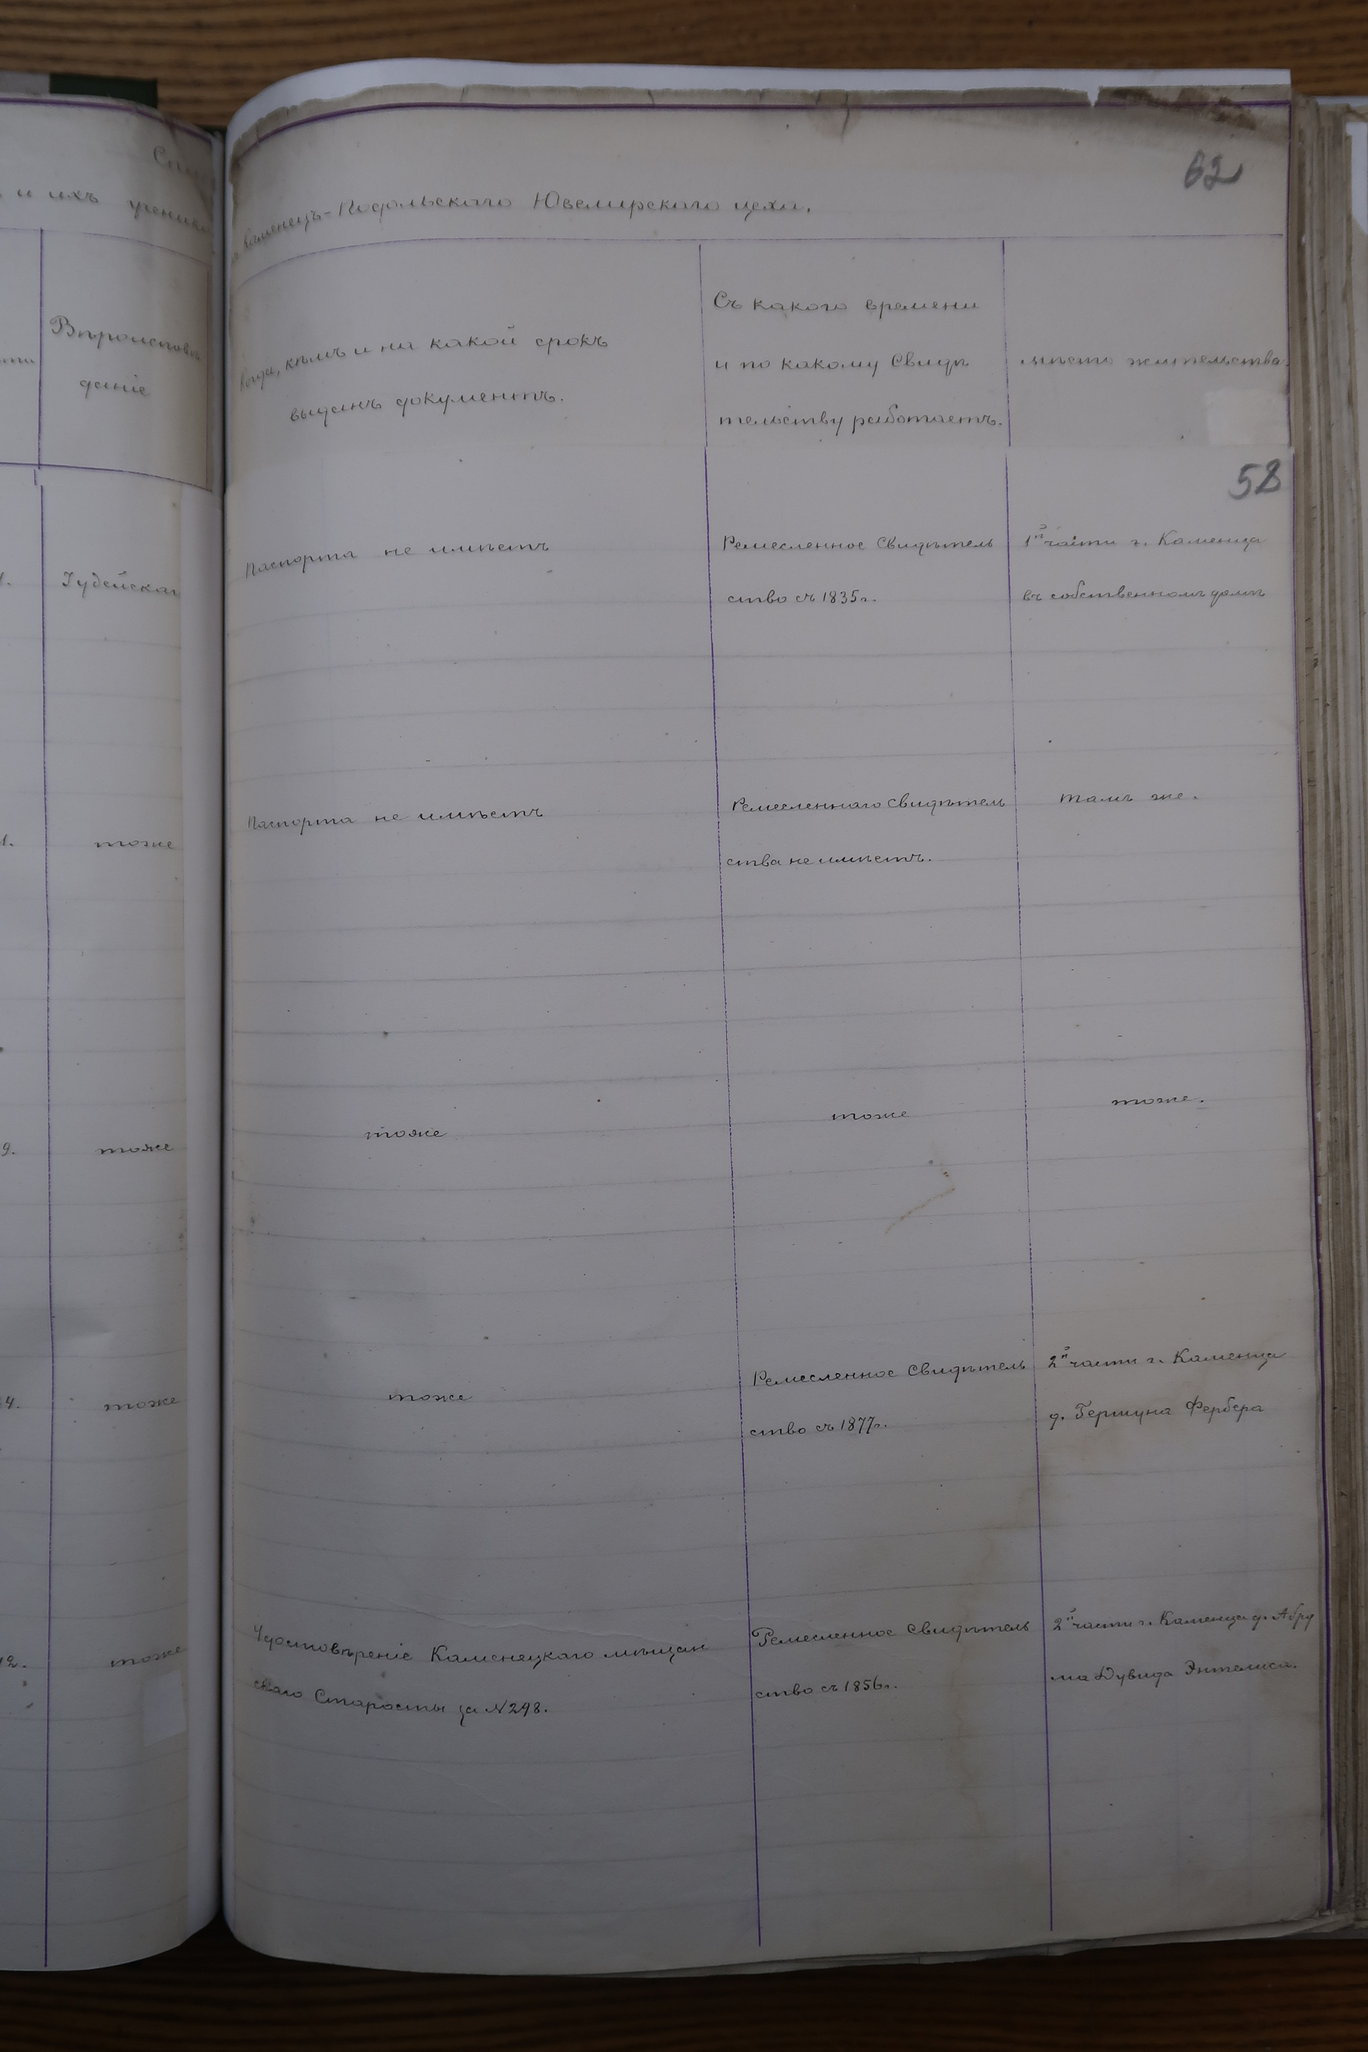 62
и ихъ
г. Каменецъ-Подольскаго Ювелирскаго цеха.
Вѣроисповѣ
даніе
Когда, кѣмъ и на какой срокъ
выданъ документъ.
Съ какого времени
и по какому Свидѣ
тельству работаетъ.
мѣсто жительства.
58
Іудейская
Паспорта не имѣетъ
Ремесленное Свидѣтель
ство съ 1835г.
1й части г. Каменца
въ собственномъ домѣ
1.
тоже
Паспорта не имѣетъ
Ремесленнаго Свидѣтель
ства не имѣетъ.
тамъ же.
9.
тоже
тоже
тоже
тоже.
4.
тоже
тоже
Ремесленное Свидѣтель
ство съ 1877г.
2й части г. Каменца
д. Гершуна Фербера
2.
тоже
Удостовѣреніе Каменецкаго мѣщан
скаго Старосты за №298.
Ремесленное Свидѣтель
ство съ 1856г.
2й части г. Каменца д. Абру
ма Дувида Энтелиса.